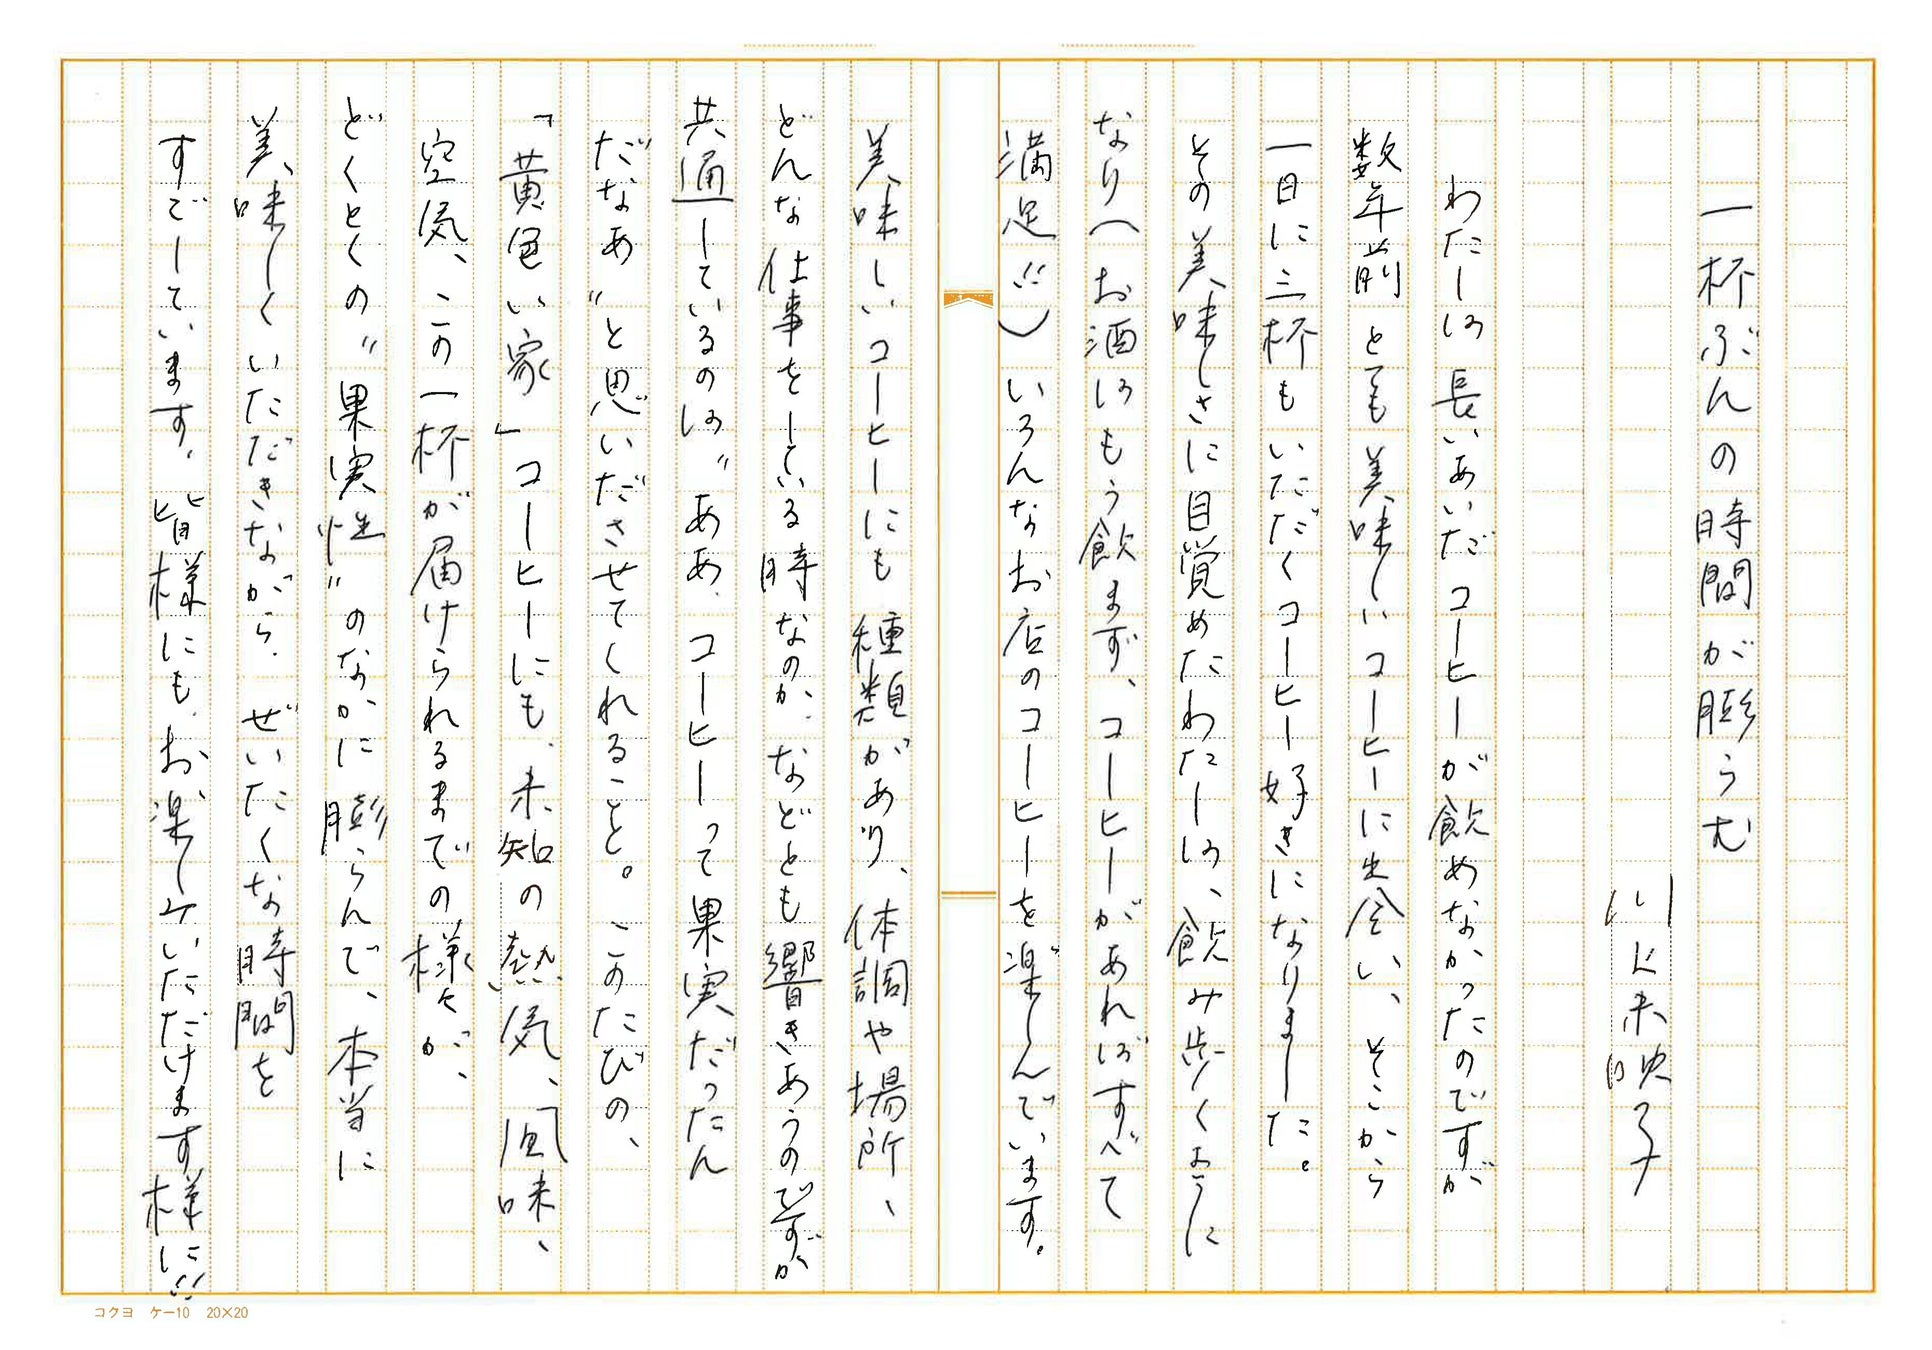 一杯ぶんの時間が膨らむ
川上未映子
わたしは長いあいだコーヒーが飲めなかったのですが
数年前とても美味しいコーヒーに出会い、そこから
一日に三杯もいただくコーヒー好きになりました。
その美味しさに目覚めたわたしは、飲み歩くように
なり(お酒はもう飲まず、コーヒーがあればすべて
満足!!)いろんなお店のコーヒーを楽しんでいます。
美味しいコーヒーにも種類があり、体調や場所、
どんな仕事をしている時なのか、などとも響きあうのですが
共通しているのは〝ああ、コーヒーって果実だったん
だなあ〟と思いださせてくれること。このたびの、
「黄色い家」コーヒーにも、未知の熱気、風味、
空気、この一杯が届けられるまでの様々が、
どくとくの〝果実性〟のなかに膨らんで、本当に
美味しくいただきながら、ぜいたくな時間を
すごしています。皆様にも、お楽しみいただけます様に!!
コクヨ ケー10 20×20